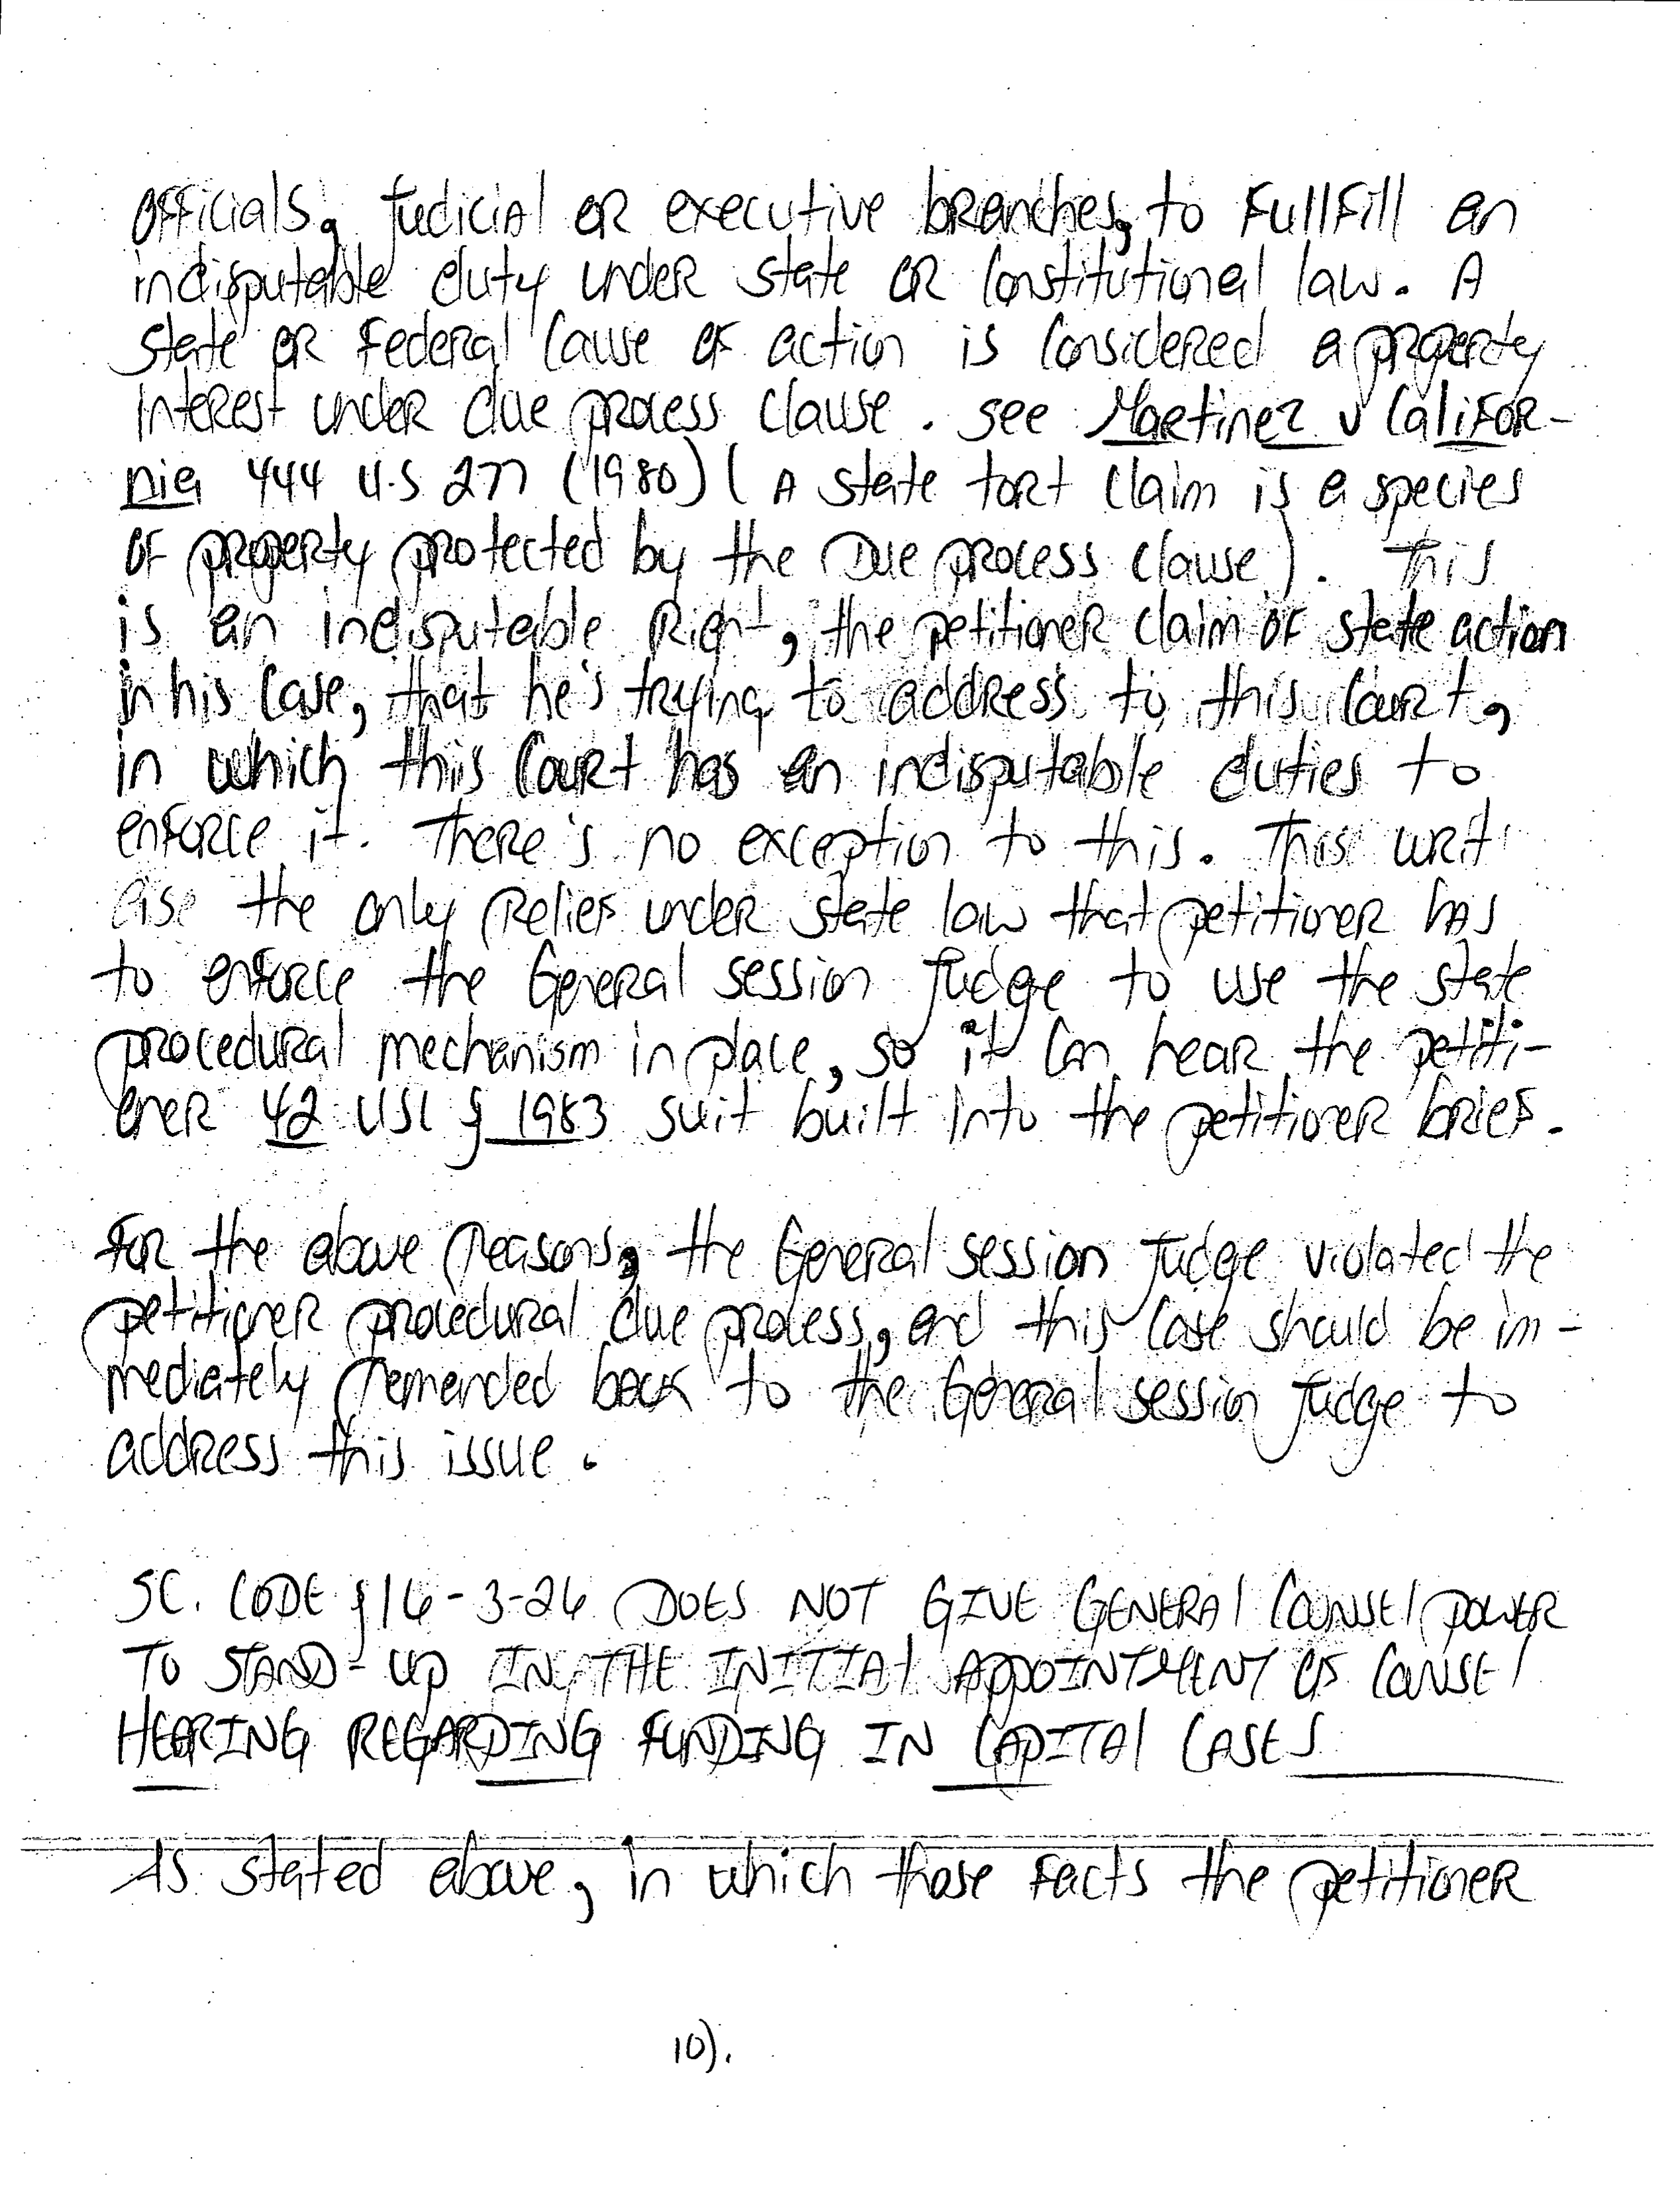 officials, judicial or executive branches, to fullfill an
indisputable duty under state or constitutional law. A
state or federal cause of action is considered a property
interest under due process clause. see Martinez v Califor-
nia 444 U.S 277 (1980) (A state tort claim is a species
of property protected by the Due process clause). This
is an indisputable Right, the petitioner claim of state action
in his case, that he's trying to address to this court,
in which this court has an indisputable duties to
enforce it. There's no exception to this. This writ
is the only relief under state law that petitioner has
to enforce the General session Judge to use the state
procedural mechanism in place, so it can hear the petiti-
oner 42 USC § 1983 suit built into the petitioner brief.
For the above reasons, the General session Judge violated the
petitioner procedural due process, and this case should be im-
mediately remanded back to the General session Judge to
address this issue.
SC. CODE § 16-3-26 DOES NOT GIVE GENERAL COUNSEL POWER
TO STAND-UP IN THE INITIAL APPOINTMENT OF COUNSEL
HEARING REGARDING FUNDING IN CAPITAL CASES
As stated above, in which those facts the petitioner
10).